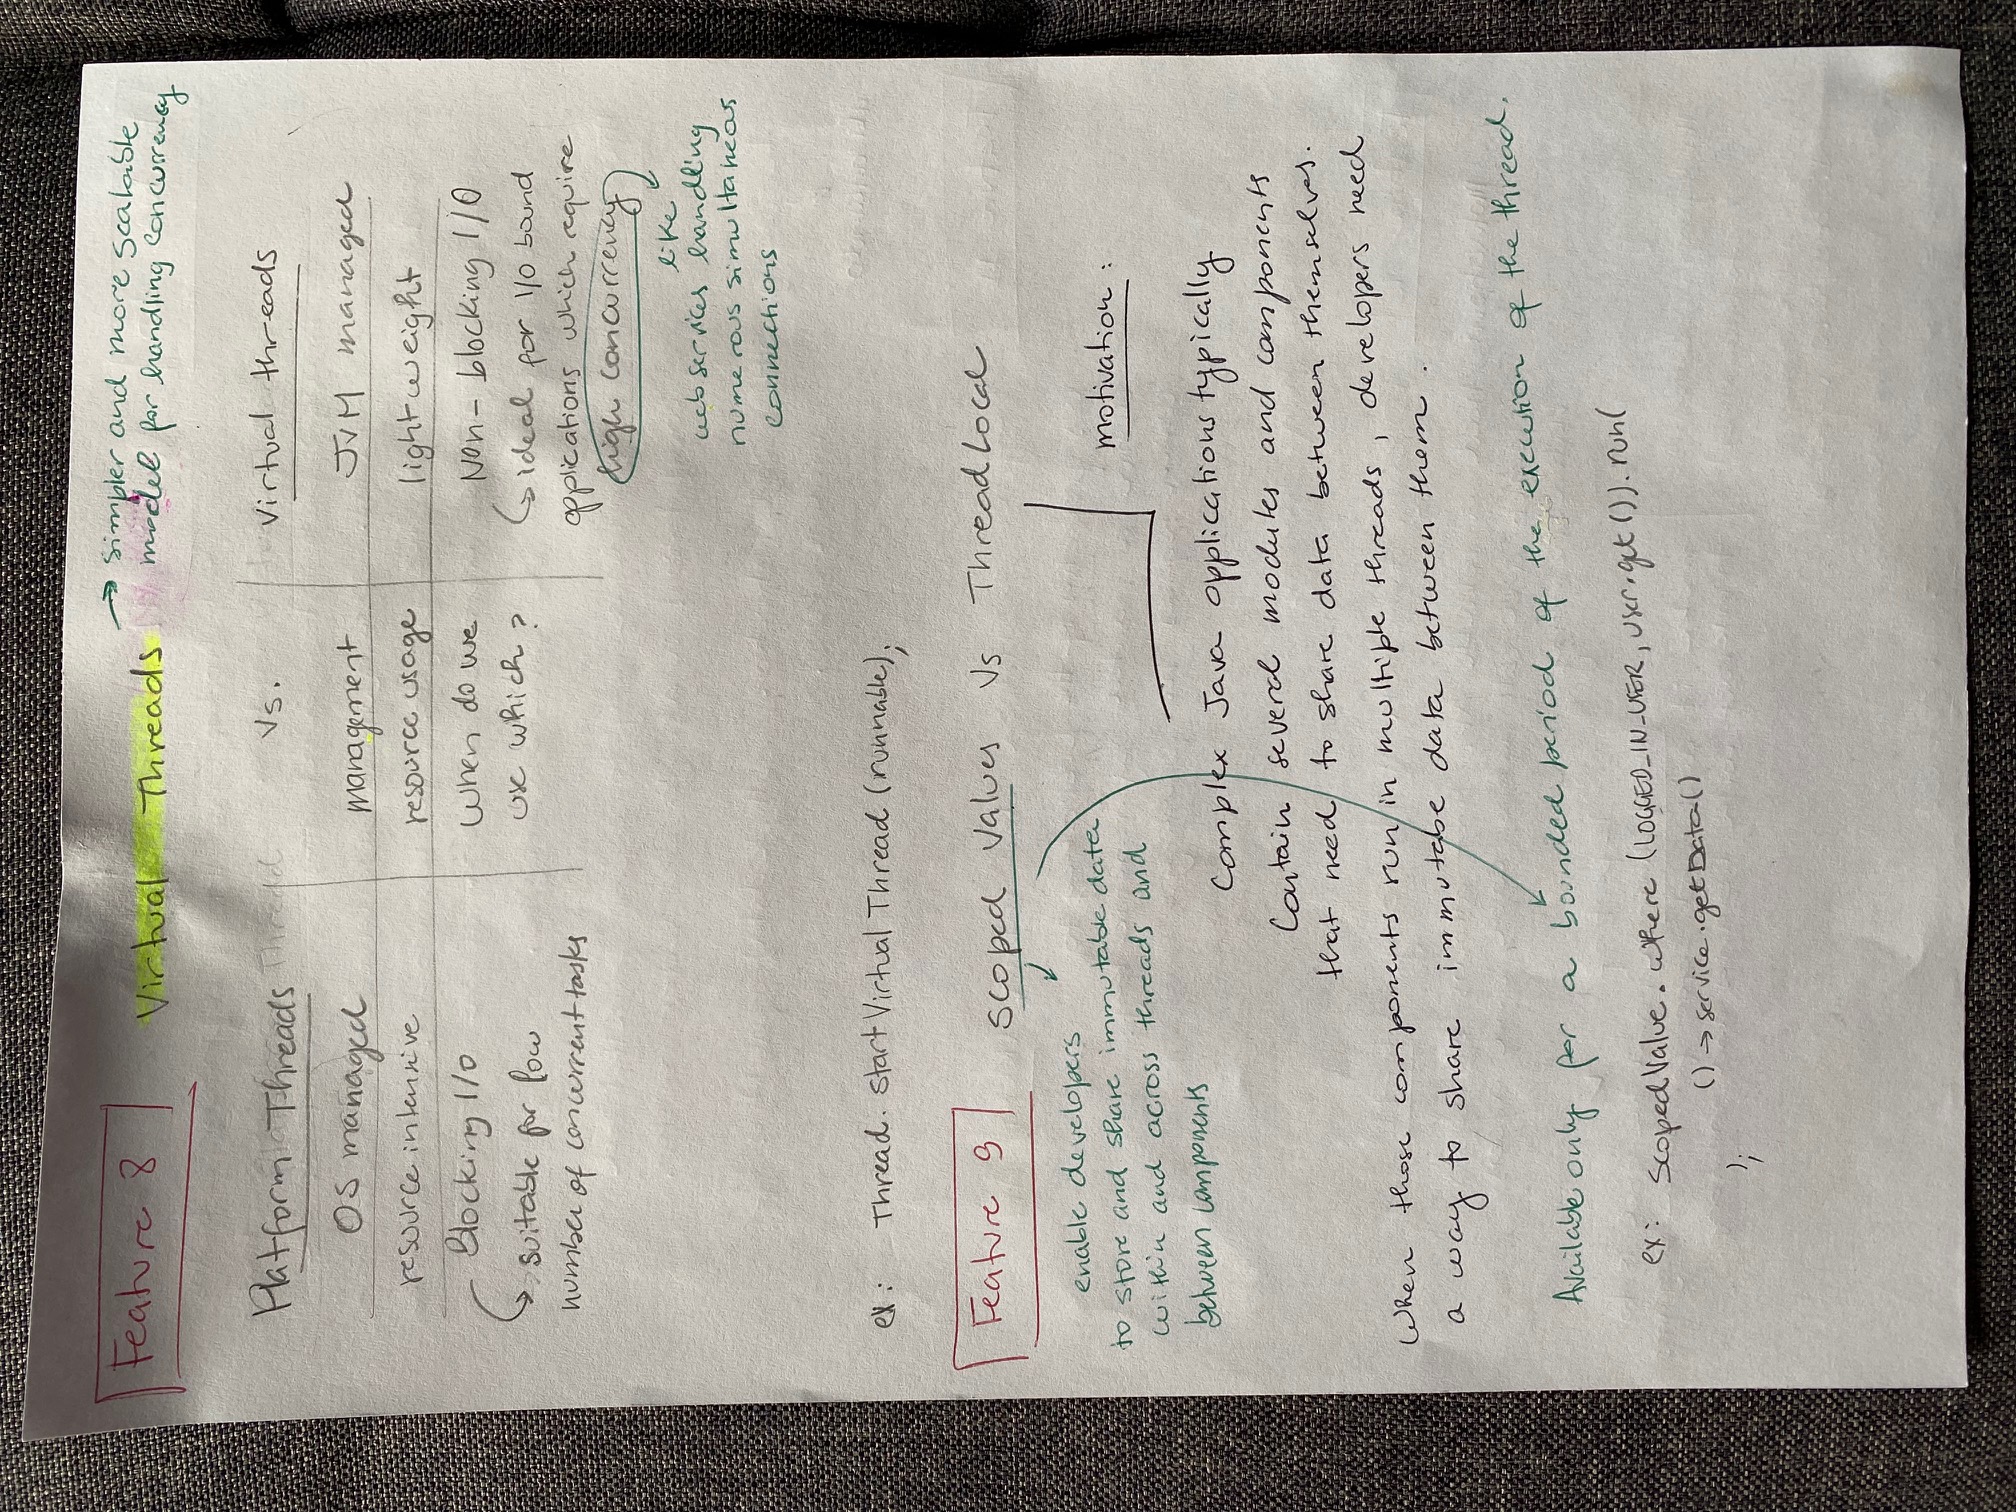 Feature 8
Virtual Threads
→ simpler and more scalable
model for handling concurrency
Platform Threads Vs. Virtual threads
OS managed management JVM managed
resource intensive resource usage lightweight
Blocking I/O When do we Non-blocking I/O
suitable for low use which? ideal for I/O bound
number of concurrent tasks applications which require
high concurrency
like
web services handling
numerous simultaneous
connections
ex: Thread.startVirtualThread(runnable);
Feature 9
Scoped Values Vs ThreadLocal
enable developers
to store and share immutable data
within and across threads and
between components
motivation:
Complex Java applications typically
contain several modules and components
that need to share data between themselves.
When those components run in multiple threads, developers need
a way to share immutabe data between them.
Available only for a bounded period of the execution of the thread.
ex: ScopedValue.where(LOGGED_IN_USER, user.get()).run(
() → service.getData()
);